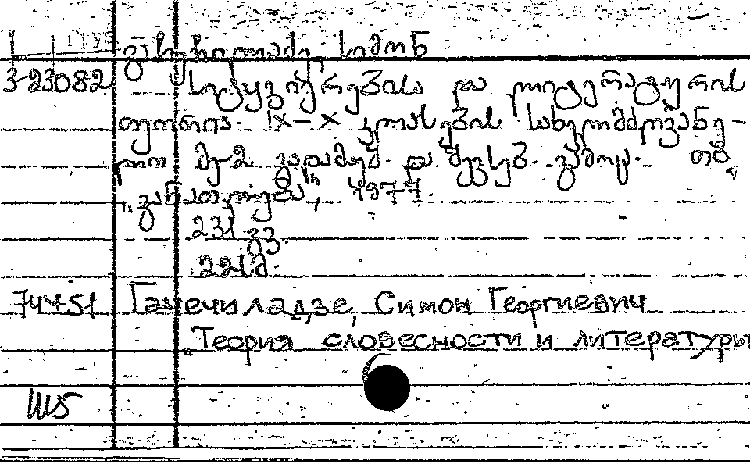 გაჩეჩილაძე, სიმონ
3-23082 სიტყვიერებისა და ლიტერატურის
თეორია. IX-X კლასების სახელმძღვანე-
ლო მე-2 გადამუშ. და შევსებ. გამოც. თბ.
„განათლება“, 1977.
231 გვ.
22 სმ.
74451 Гачечиладзе, Симон Георгиевич
Теория словесности и литературы